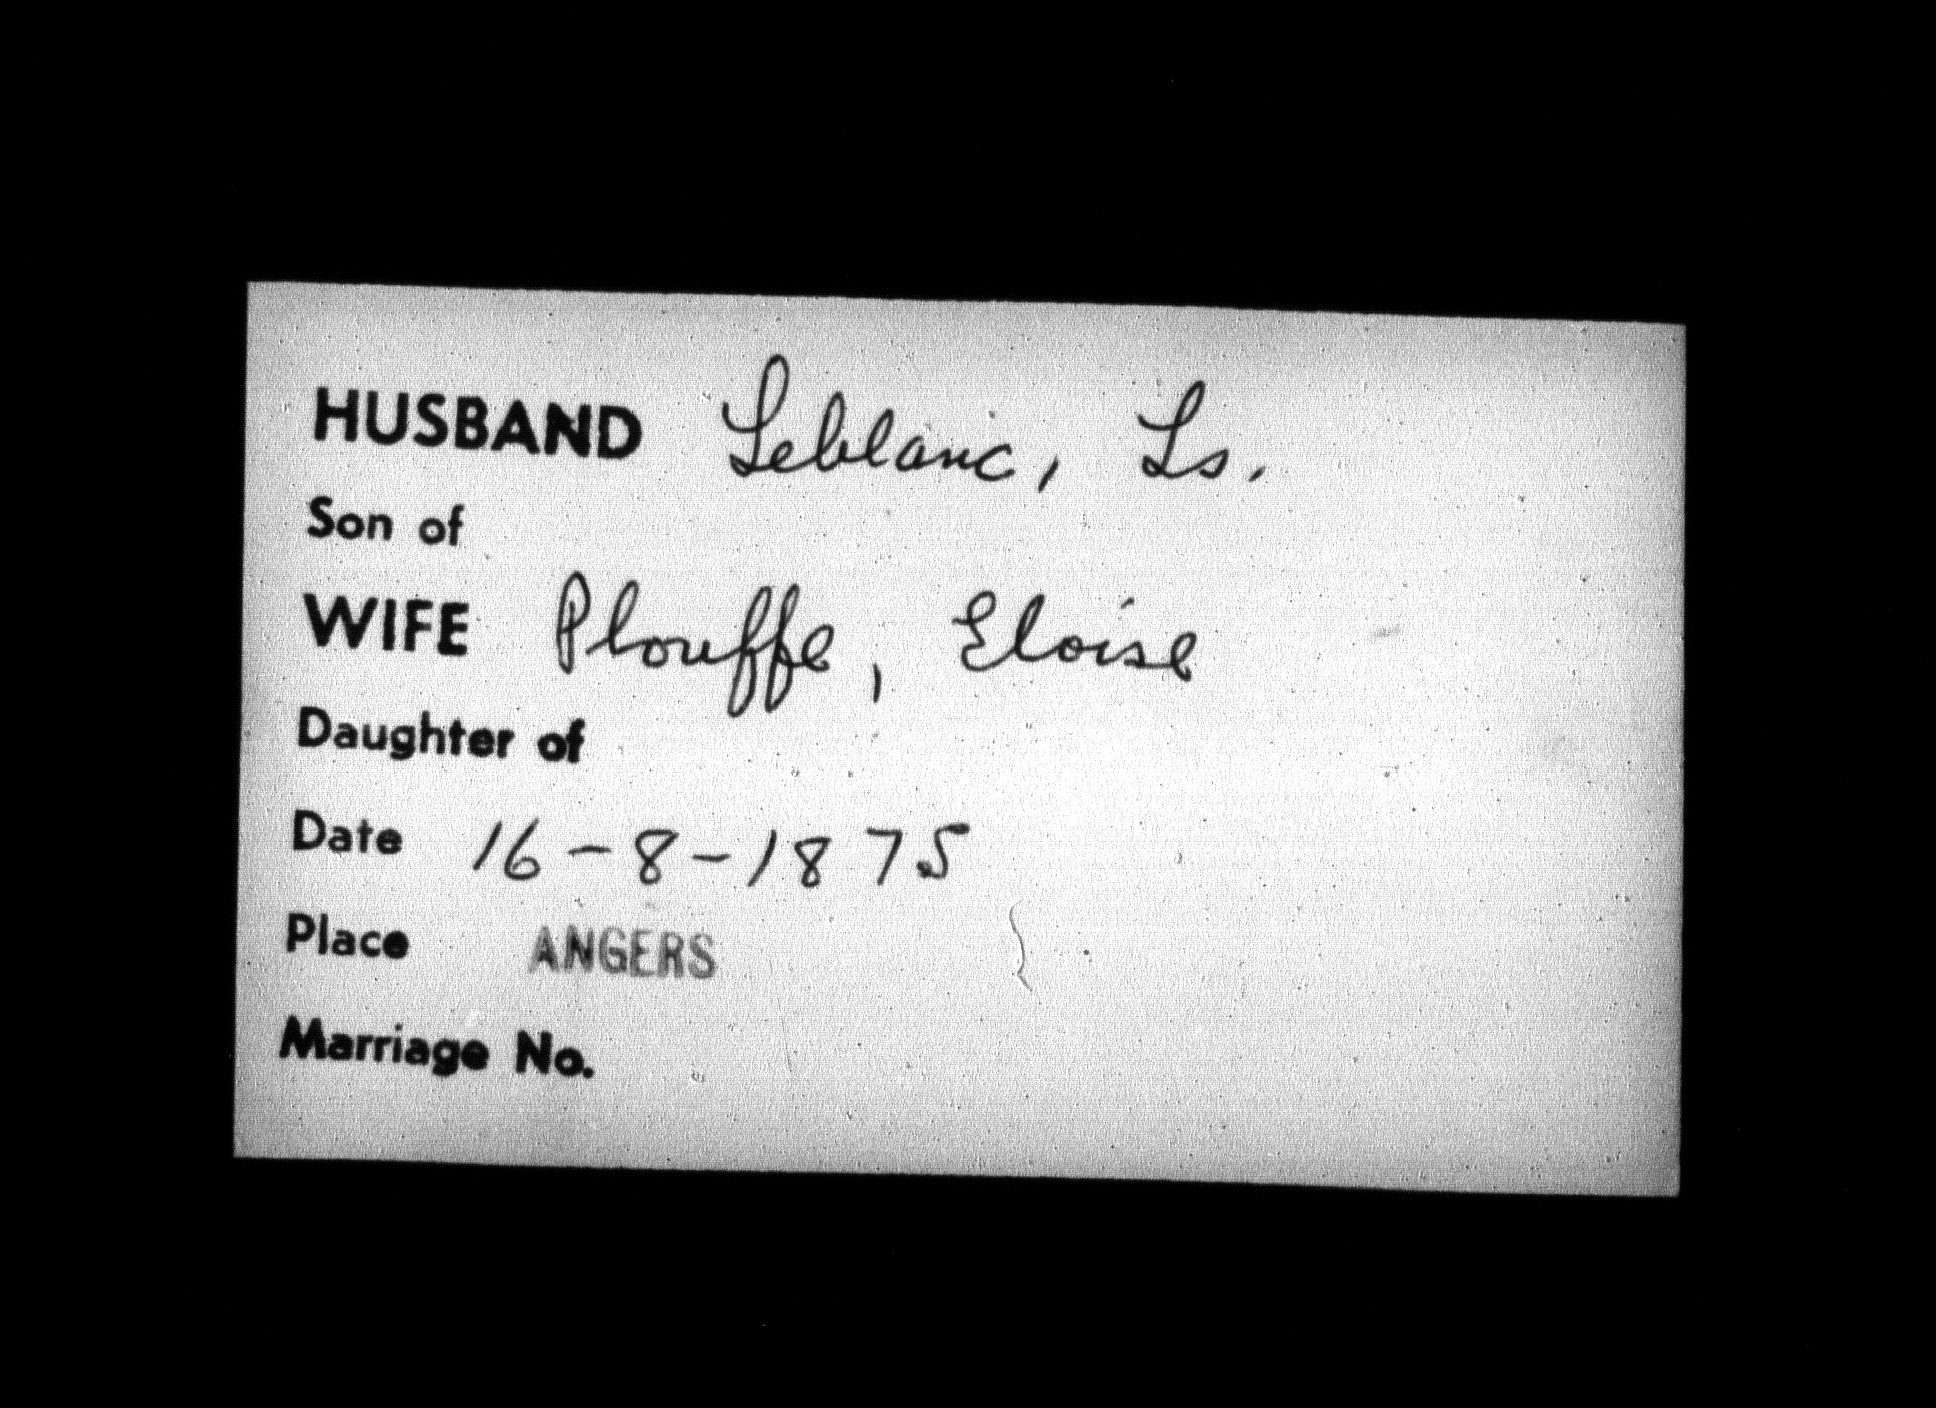 HUSBAND Leblanc, Ls.
Son of
WIFE Plouffe, Eloise
Daughter of
Date 16-8-1875
Place ANGERS
Marriage No.